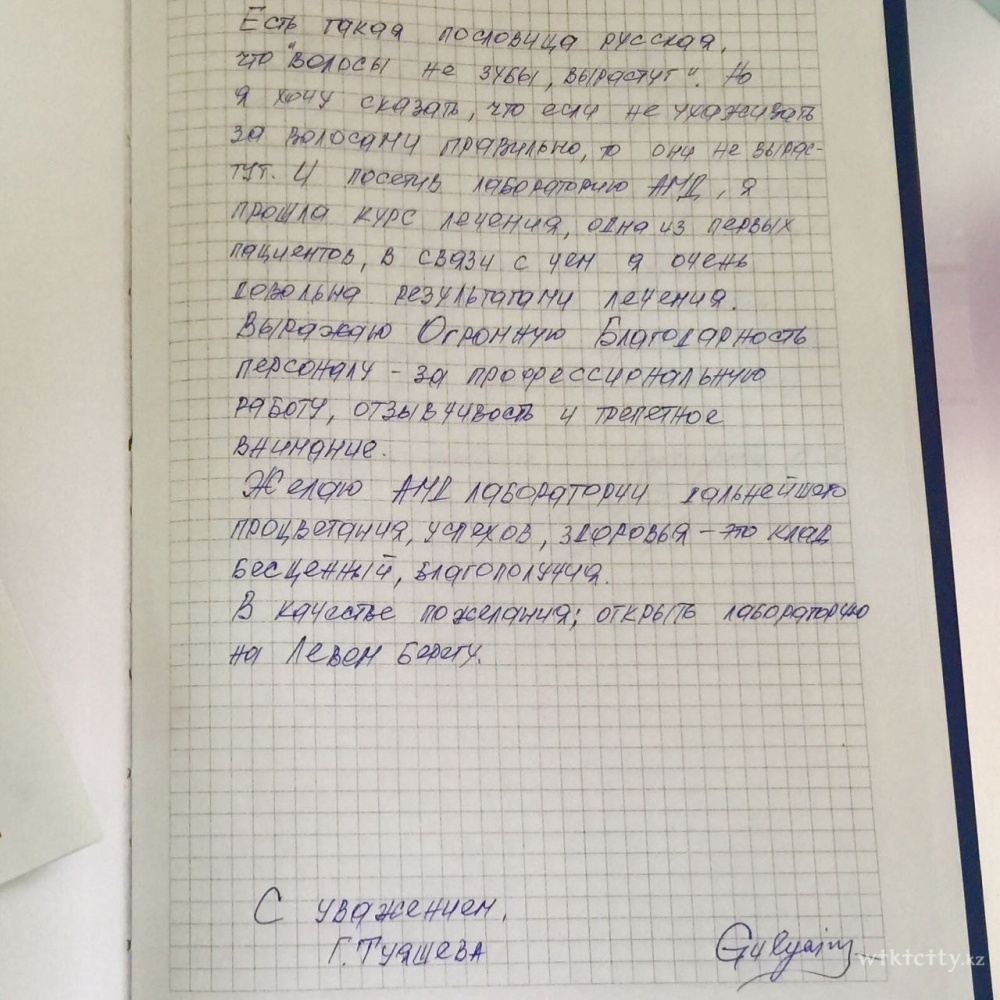 Есть такая пословица русская,
что "волосы не зубы, вырастут". Но
я хочу сказать, что если не ухаживать
за волосами правильно, то они не вырас-
тут. И посетив лабораторию АМД, я
прошла курс лечения, одна из первых
пациентов, в связи с чем я очень
довольна результатами лечения.
Выражаю Огромную Благодарность
персоналу - за профессиональную
работу, отзывчивость и трепетное
внимание.
Желаю АМД лаборатории дальнейшего
процветания, успехов, здоровья - это клад
бесценный, благополучия.
В качестве пожелания; открыть лабораторию
на Левом берегу.
С уважением,
Г. Туяшева
Gulyainy
wikicity.kz